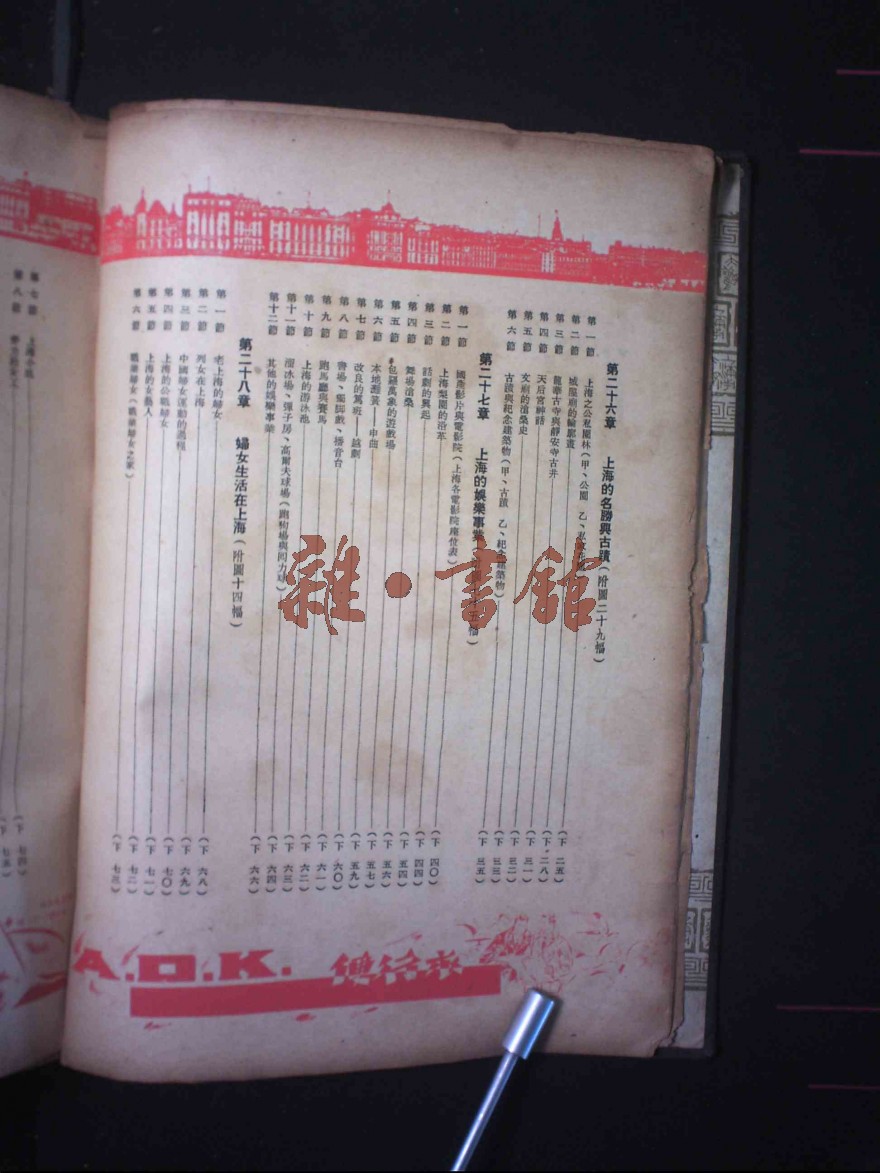 第二十六章 上海的名勝與古蹟(附圖二十九幅)
第一節 上海之公私園林(甲、公園 乙、私
第二節 城隍廟的輪廓畫 (下 二五)
第三節 龍華古寺與靜安寺古井 (下 二八)
第四節 天后宮神話 (下 三一)
第五節 文廟的滄桑史 (下 三二)
第六節 古蹟與紀念建築物(甲、古蹟 乙、紀念建築物) (下 三三)
(下 三五)
第二十七章 上海的娛樂事業 五幅)
第一節 國產影片與電影院(上海各電影院座位表)
第二節 上海梨園的沿革 (下 四〇)
第三節 話劇的興起 (下 四四)
第四節 舞場滄桑 (下 五四)
第五節 包羅萬象的遊戲場 (下 五六)
第六節 本地灘簧——申曲 (下 五七)
第七節 改良的篤班——越劇 (下 五九)
第八節 書場、獨脚戲、播音台 (下 六〇)
第九節 跑馬廳與賽馬 (下 六一)
第十節 上海的游泳池 (下 六二)
第十一節 溜冰場、彈子房、高爾夫球場(跑狗場與回力球) (下 六三)
第十二節 其他的娛樂事業 (下 六四)
(下 六六)
第二十八章 婦女生活在上海(附圖十四幅)
第一節 老上海的婦女
第二節 列女在上海 (下 六八)
第三節 中國婦女運動的過程 (下 六九)
第四節 上海的公職婦女 (下 七〇)
第五節 上海的女藝人 (下 七一)
第六節 職業婦女(職業婦女之家) (下 七二)
(下 七三)
第七節
第八節
(下 七四)
(下 七五)
A.O.K.
雜·書館